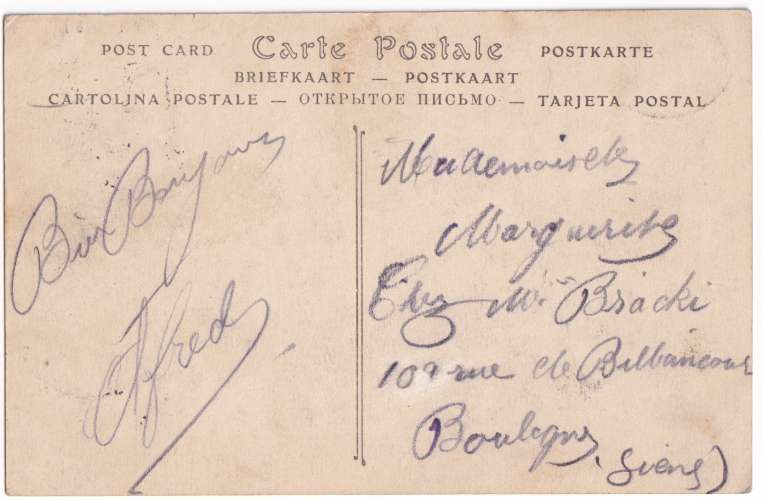 POST CARD Carte Postale POSTKARTE
BRIEFKAART — POSTKAART
CARTOLINA POSTALE — ОТКРЫТОЕ ПИСЬМО — TARJETA POSTAL
Bien Bonjour
Alfred
Mademoiselle
Marguerite
Chez Mr Bracki
109 rue de Billancour
Boulogne